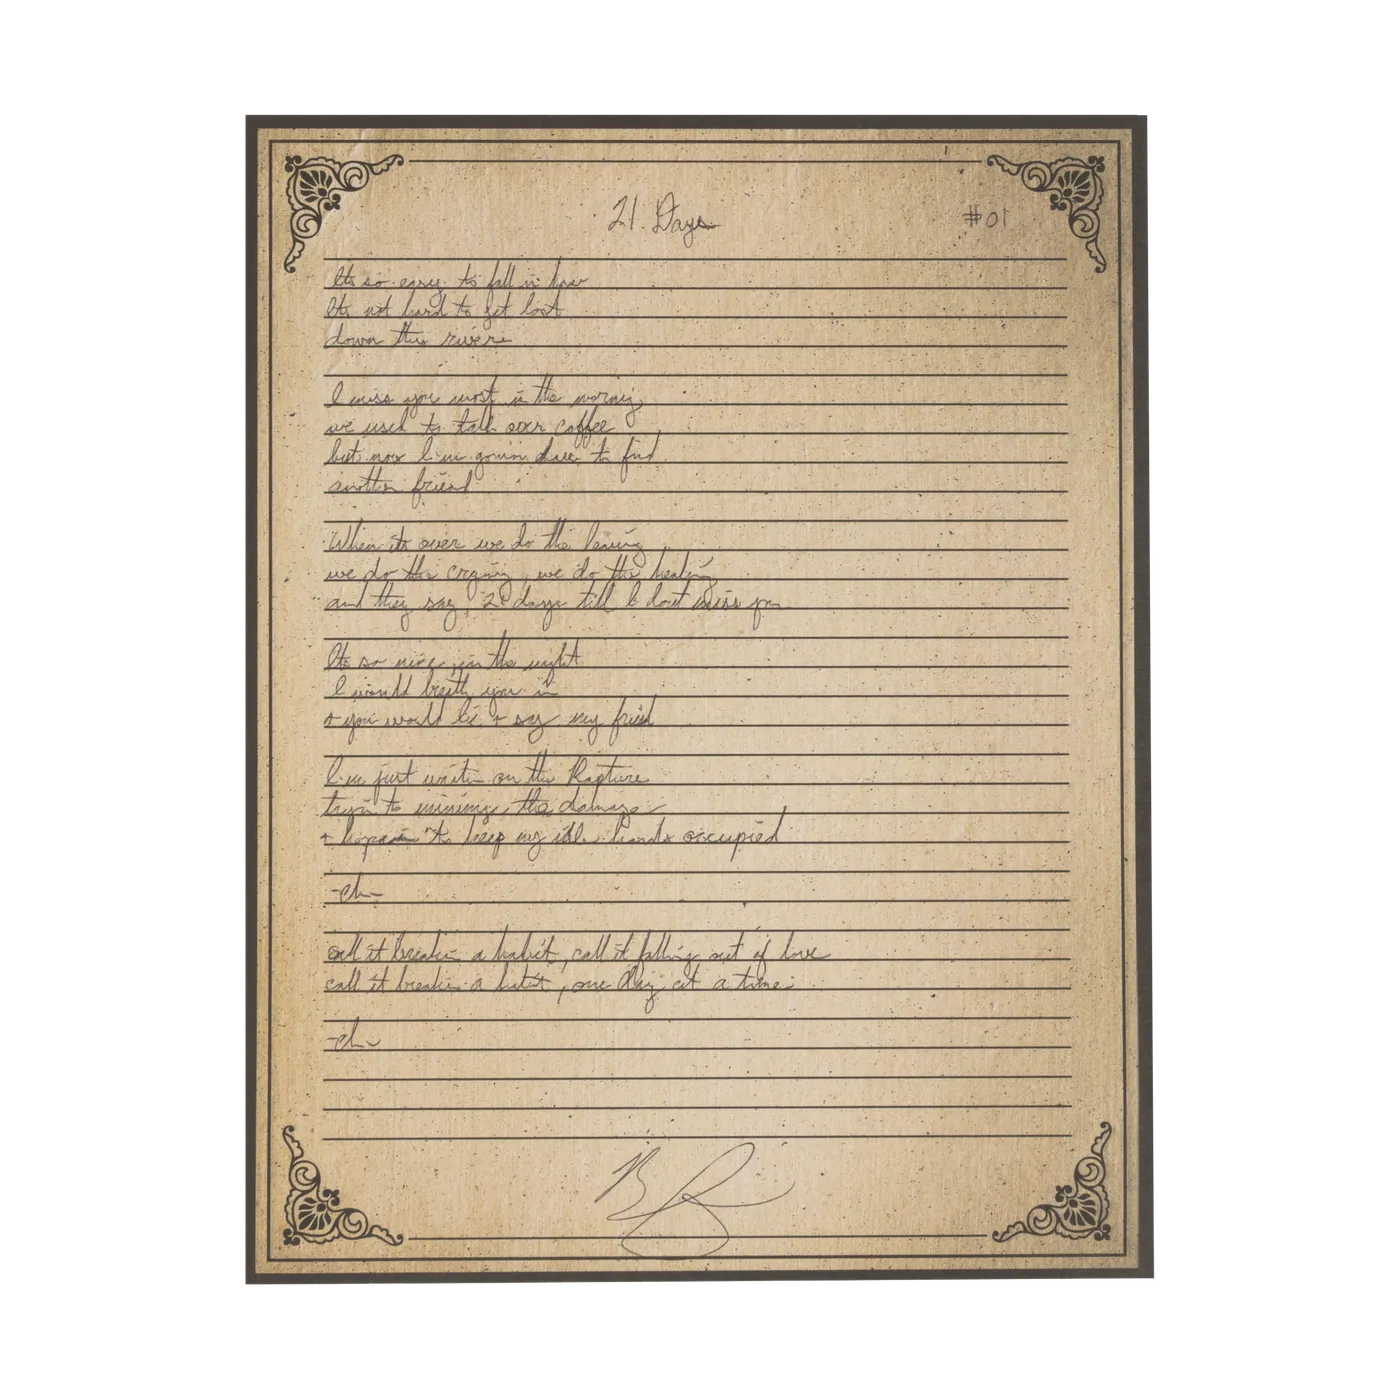 21 Days
#01
Its so easy to fall in love
Its not hard to get lost
down this river
I miss you most in the morning
we used to talk over coffee
but now I'm gonna have to find
another friend
When its over we do the leaving
we do the crying, we do the healing
and they say, 21 days till I dont miss you
Its so nice in the night
I would breath you in
+ you would lie + say my friend
I'm just waitin on the Rapture
tryin to the damage
+ hopein to keep my idle hands occupied
-ch-
call it breakin a habit, call it falling out of love
call it breakin a habit, one day at a time
-ch-